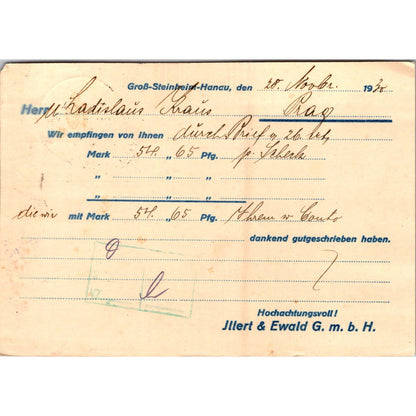 Groß-Steinheim-Hanau, den 30. Novbr. 1930
Herrn Ladislaus Kraus
Prag
Wir empfingen von Ihnen durch Brief v 26. ds.
Mark 54 „ 65 Pfg. p. Scheck
„ „ „
„ „ „
die wir mit Mark 54. „ 65 Pfg. Ihrem w Conto
dankend gutgeschrieben haben.
Hochachtungsvoll!
Jllert & Ewald G. m. b. H.